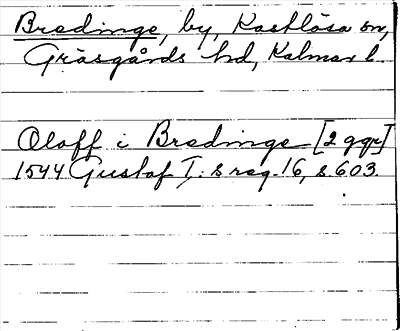 Bredinge, by, Kastlösa sn,
Gräsgårds hd, Kalmar l.
Oloff i Bredinge [2 ggr]
1544 Gustaf I:s reg. 16, s 603.